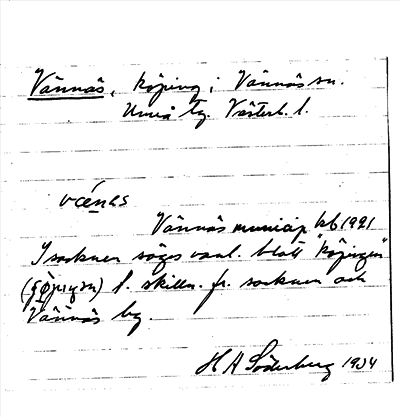 Vännäs, köping i Vännäs sn.
Umeå tg. Västerb. l.
væ̂nɛs
Vännäs municip kb 1921
I socknen säges vanl. blott "Köpingen"
t. skilln. fr. socknen och
Vännäs by.
H A Söderberg 1934